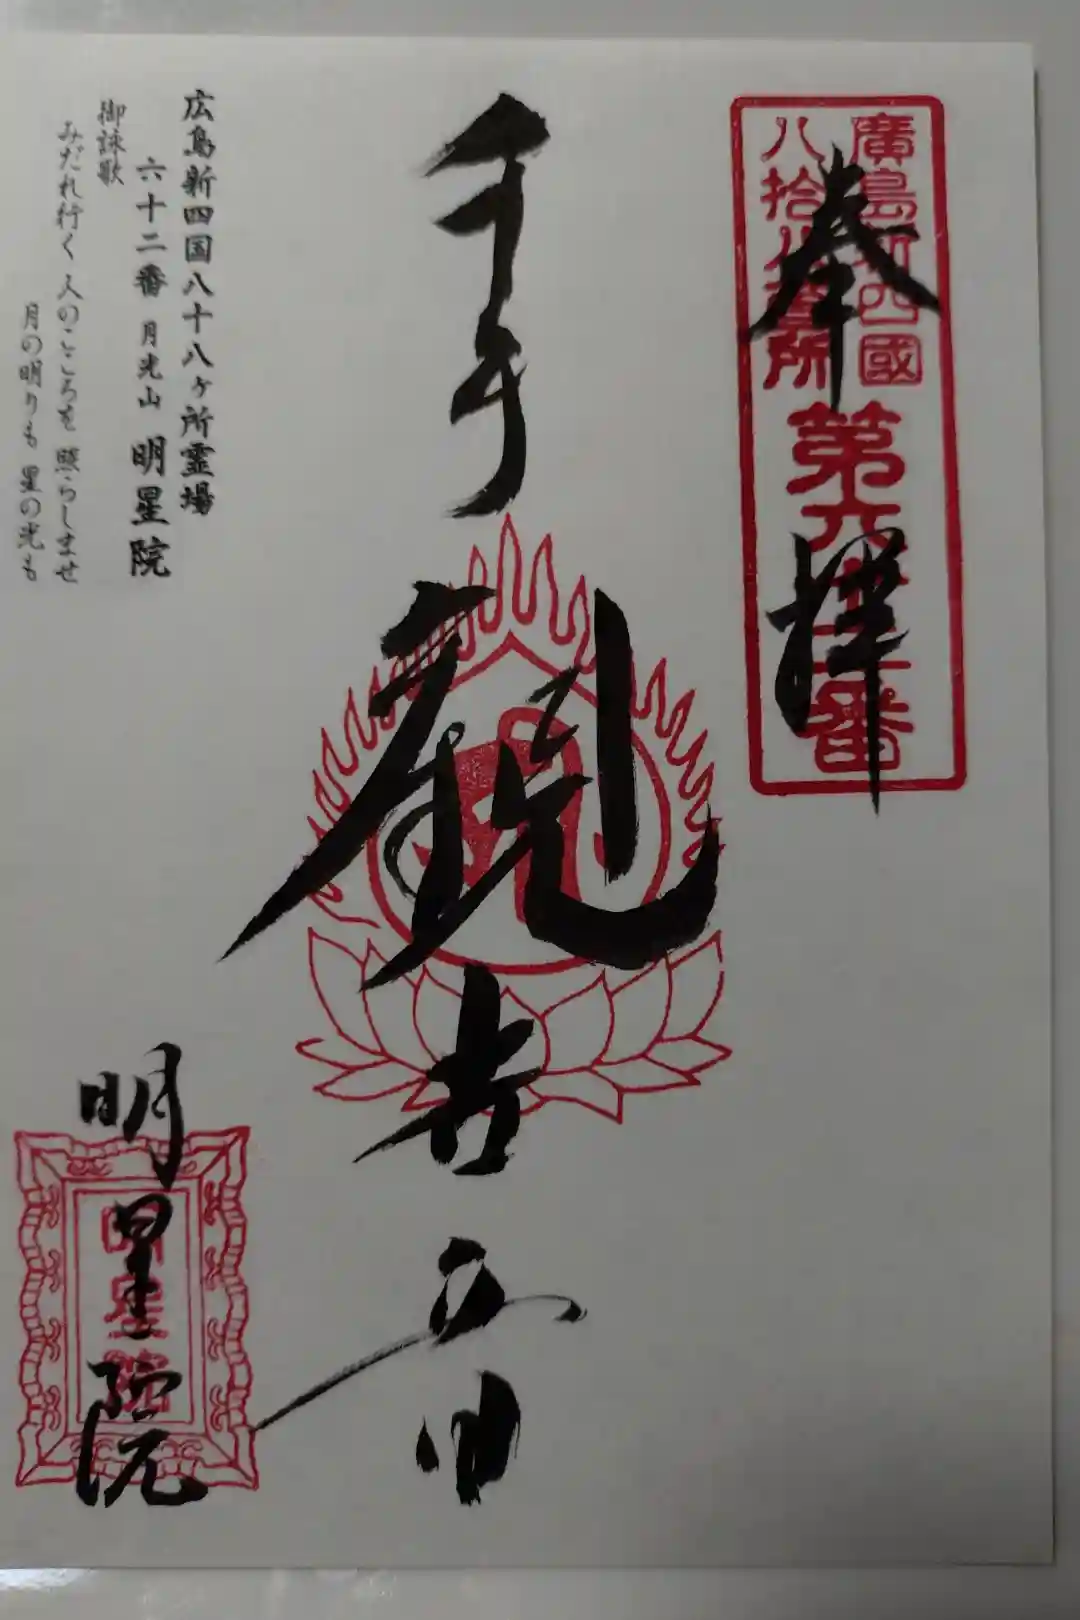 奉拝
廣島新四國
八拾八箇所
第六十二番
千手
観世音
明星院
明星院
広島新四国八十八ヶ所霊場
六十二番 月光山 明星院
御詠歌
みだれ行く 人のこころを 照らしませ
月の明りも 星の光も